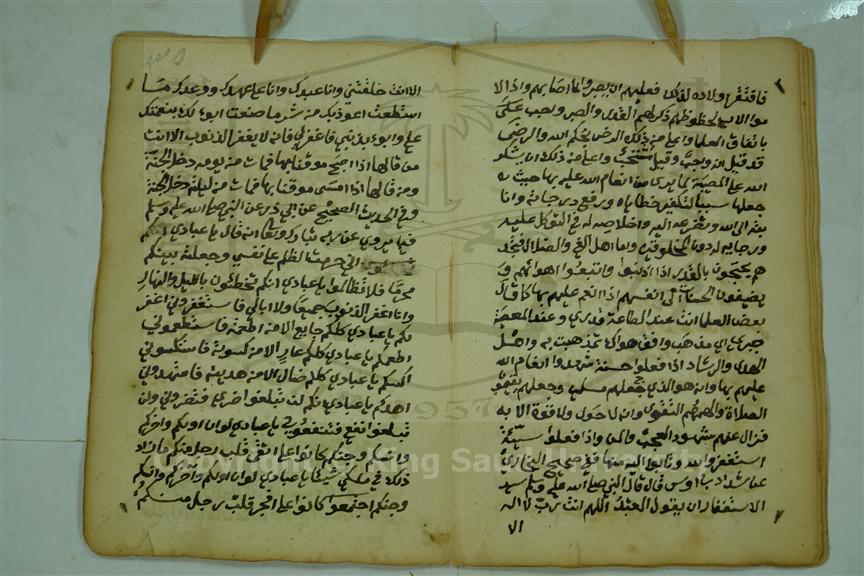 فافتقر اولاده لذلك فعليهم ان يصبروا لما اصابهم واذا لا
موا الاب لحظوظهم ذكر لهم القدر والصبر واجب علي
باتفاق العلما واعلا من ذلك الرضى بحكم الله والرضى
قد قيل انه واجب وقيل مستحب واعلا من ذلك ان يشكر
الله على المصيبة لما يرى من انعام الله عليه بها حيث
جعلها سببا لتكفير خطاياه ورفع درجاته وانا
بته الى الله وتضرعه اليه واخلاصه له في التوكل عليه
ورجايه له دون المخلوقين واما اهل الغي والضلال فتجد
هم يحتجون بالقدر اذا اذنبوا واتبعوا اهواءهم و
يضيفون الحسنات الى انفسهم اذا انعم عليهم بها كما قال
بعض العلما انت عند الطاعة قدري وعند المعصية
جبري اي مذهب وافق هواك تمذهبت به واهل
الهدى والرشاد اذا فعلوا حسنة شهدوا انعام الله
عليهم بها وانه هو الذي جعلهم مسلمين وجعلهم يقيمو
الصلاة والهمهم التقوى وانه لا حول ولا قوة الا به
فزال عنهم شهود العجب والمن واذا فعلوا سيئة
استغفروا الله وتابوا اليه منها ففي صحيح البخاري
عن شداد بن اوس قال قال النبي صلى الله عليه وسلم سيد
الاستغفار ان يقول العبد اللهم انت ربي لا اله
الا
الا انت خلقتني وانا عبدك وانا على عهدك ووعدك ما
استطعت اعوذ بك من شر ما صنعت ابوء لك بنعمتك
علي وابوء بذنبي فاغفر لي فانه لا يغفر الذنوب الا انت
من قالها اذا اصبح موقنا بها فمات من يومه دخل الجنة
ومن قالها اذا امسى موقنا بها فمات من ليلته دخل الجنة
وفي الحديث الصحيح عن ابي ذر عن النبي صلى الله عليه وسلم
فيما يروي عن ربه تبارك وتعالى انه قال يا عبادي
اني حرمت الظلم على نفسي وجعلته بينكم
محرما فلا تظالموا يا عبادي انكم تخطئون بالليل والنهار
وانا اغفر الذنوب جميعا ولا ابالي فاستغفروني اغفر
لكم يا عبادي كلكم جايع الا من اطعمته فاستطعموني
اطعمكم يا عبادي كلكم عار الا من كسوته فاستكسوني
اكسكم يا عبادي كلكم ضال الا من هديته فاستهدوني
اهدكم يا عبادي انكم لن تبلغوا ضري فتضروني ولن
تبلغوا نفعي فتنفعوني يا عبادي لو ان اولكم واخركم
وانسكم وجنكم كانوا على اتقى قلب رجل منكم ما زاد
ذلك في ملكي شيئا يا عبادي لو ان اولكم واخركم وانسكم
وجنكم اجتمعوا كانوا على افجر قلب رجل منكم
Copyright © King Saud University
1957